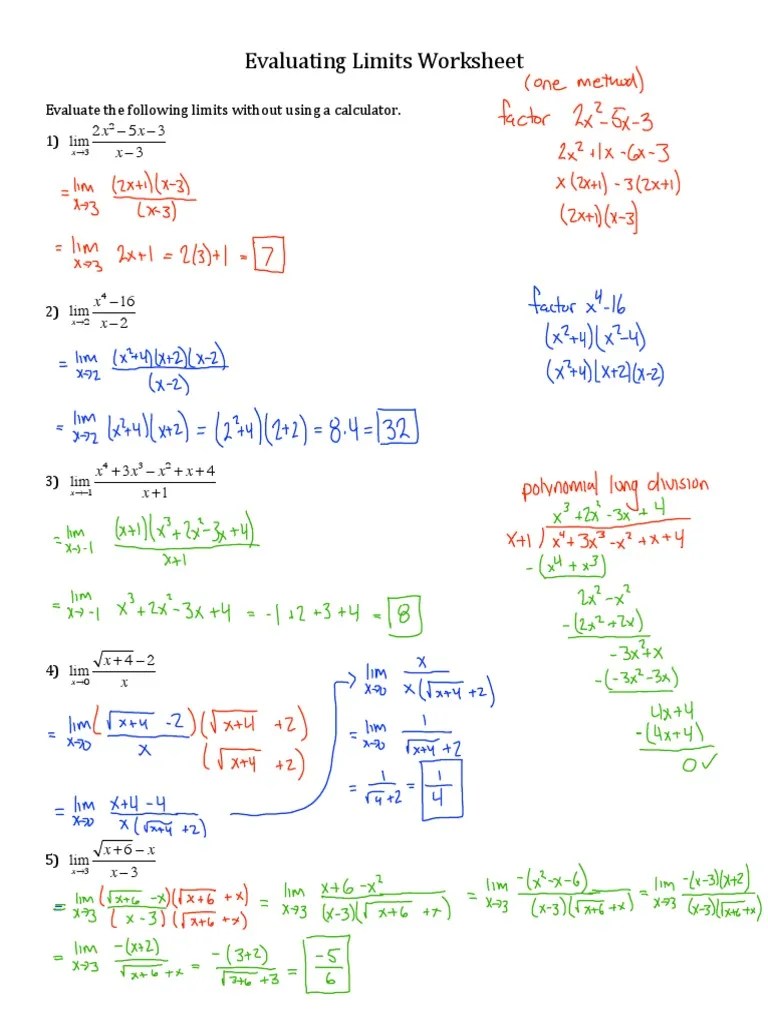 Evaluating Limits Worksheet
Evaluate the following limits without using a calculator.
(one method)
factor 2x²-5x-3
2x²+1x-6x-3
x(2x+1)-3(2x+1)
(2x+1)(x-3]
1) lim x→3 (2x²-5x-3)/(x-3)
= lim x→3 (2x+1)(x-3)/(x-3)
= lim x→3 2x+1 = 2(3)+1 = 7
2) lim x→2 (x⁴-16)/(x-2)
= lim x→2 (x²+4)(x+2)(x-2)/(x-2)
= lim x→2 (x²+4)(x+2) = (2²+4)(2+2) = 8.4 = 32
factor x⁴-16
(x²+4)(x²-4)
(x²+4)(x+2)(x-2)
3) lim x→-1 (x⁴+3x³-x²+x+4)/(x+1)
= lim x→-1 (x+1)(x³+2x²-3x+4)/(x+1)
= lim x→-1 x³+2x²-3x+4 = -1+2+3+4 = 8
polynomial long division
x³+2x²-3x+4
x+1)x⁴+3x³-x²+x+4
-(x⁴+x³)
2x²-x²
-(2x²+2x)
-3x²+x
-(-3x²-3x)
4x+4
-(4x+4)
0✓
4) lim x→0 (√(x+4)-2)/x
= lim x→0 (√(x+4) -2)(√(x+4) +2)/x(√(x+4) +2)
= lim x→0 (x+4-4)/(x(√(x+4) +2))
→ lim x→0 x/(x(√(x+4) +2))
= lim x→0 1/(√(x+4) +2)
= 1/(√4+2) = 1/4
5) lim x→3 (√(x+6)-x)/(x-3)
= lim x→3 (√(x+6) -x)(√(x+6) +x)/(x-3)(√(x+6) +x) = lim x→3 (x+6-x²)/((x-3)(√(x+6) +x)) = lim x→3 -(x²-x-6)/((x-3)(√(x+6) +x)) = lim x→3 -(x-3)(x+2)/((x-3)(√(x+6) +x))
= lim x→3 -(x+2)/(√(x+6) +x) = -(3+2)/(√(3+6) +3) = -5/6